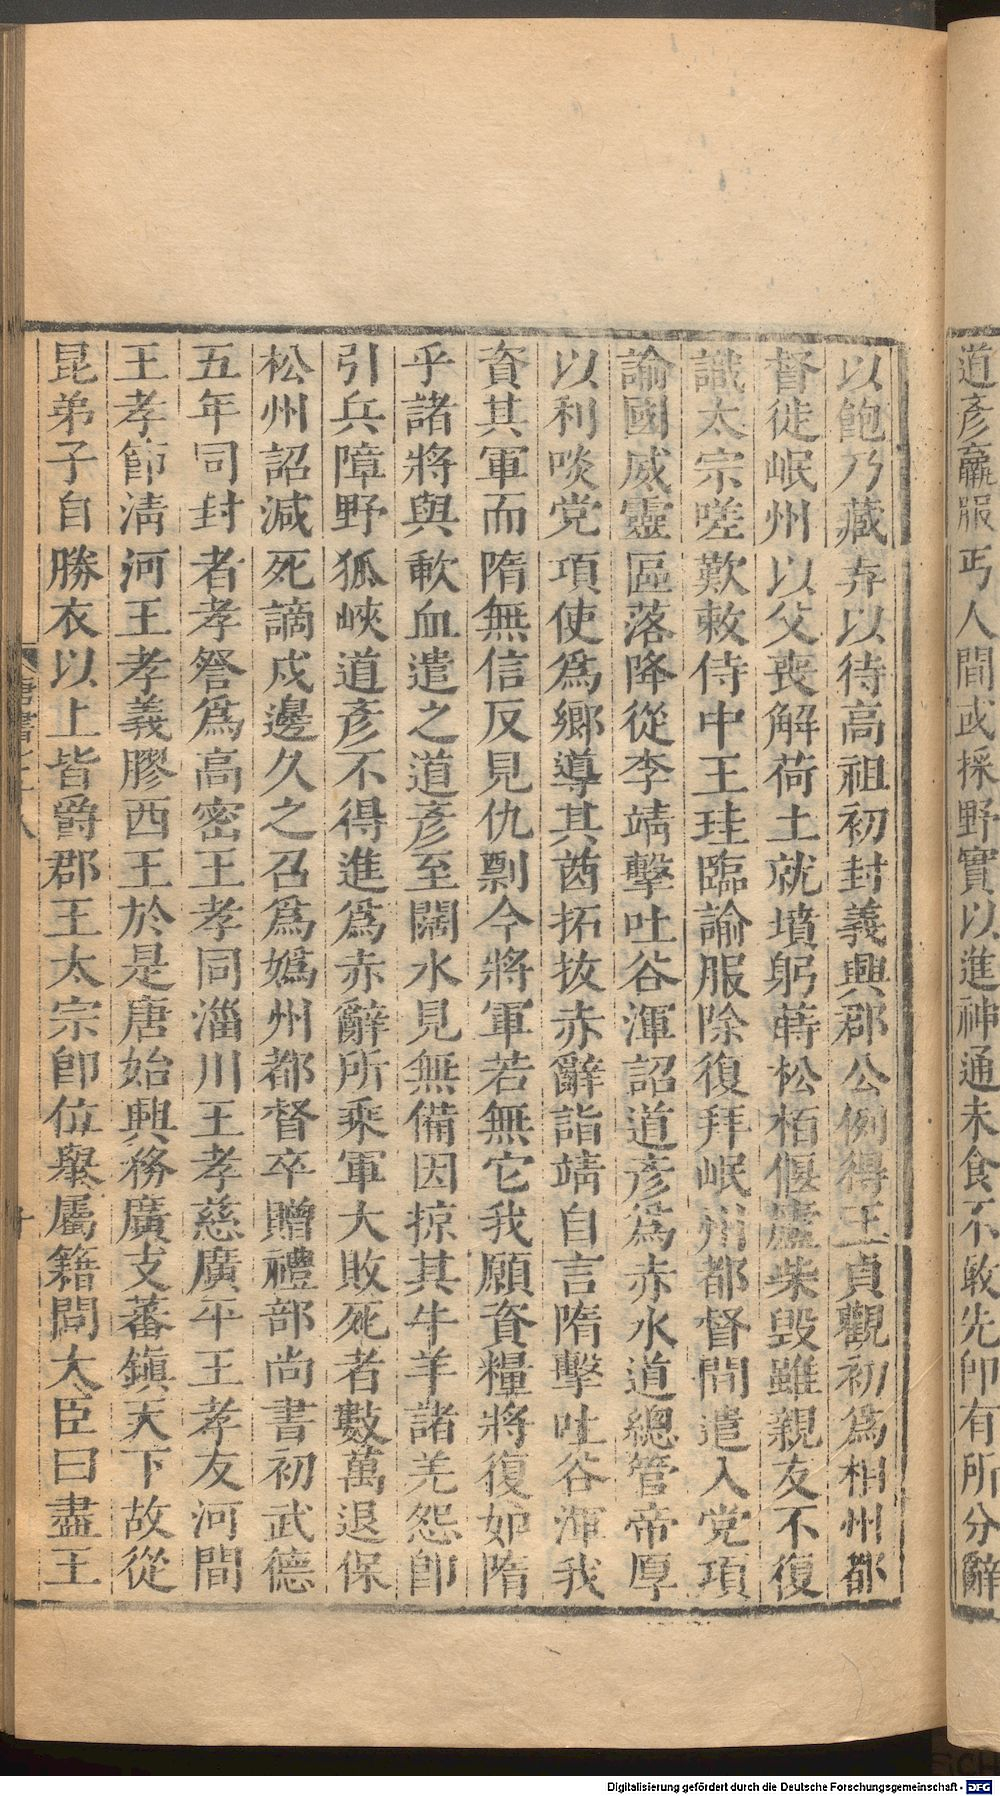 道彥羸服丐人間或採野實以進神通未食不敢先即有所分辭
以飽乃藏弃以待高祖初封義興郡公例得王貞觀初爲相州都
督徙岷州以父喪解荷土就墳躬蒔松柏偃廬柴毀雖親友不復
識太宗嗟歎敕侍中王珪臨諭服除復拜岷州都督間遣入党項
諭國威靈區落降從李靖擊吐谷渾詔道彥爲赤水道總管帝厚
以利啖党項使爲鄉導其酋拓拔赤辭詣靖自言隋擊吐谷渾我
資其軍而隋無信反見仇剽今將軍若無它我願資糧將復如隋
乎諸將與歃血遣之道彥至闊水見無備因掠其牛羊諸羌怨即
引兵障野狐峽道彥不得進爲赤辭所乘軍大敗死者數萬退保
松州詔減死謫戍邊久之召爲媯州都督卒贈禮部尚書初武德
五年同封者孝詧爲高密王孝同淄川王孝慈廣平王孝友河間
王孝節清河王孝義膠西王於是唐始興務廣支蕃鎮天下故從
昆弟子自勝衣以上皆爵郡王太宗即位舉屬籍問大臣曰盡王
唐書七十八
Digitalisierung gefördert durch die Deutsche Forschungsgemeinschaft - DFG